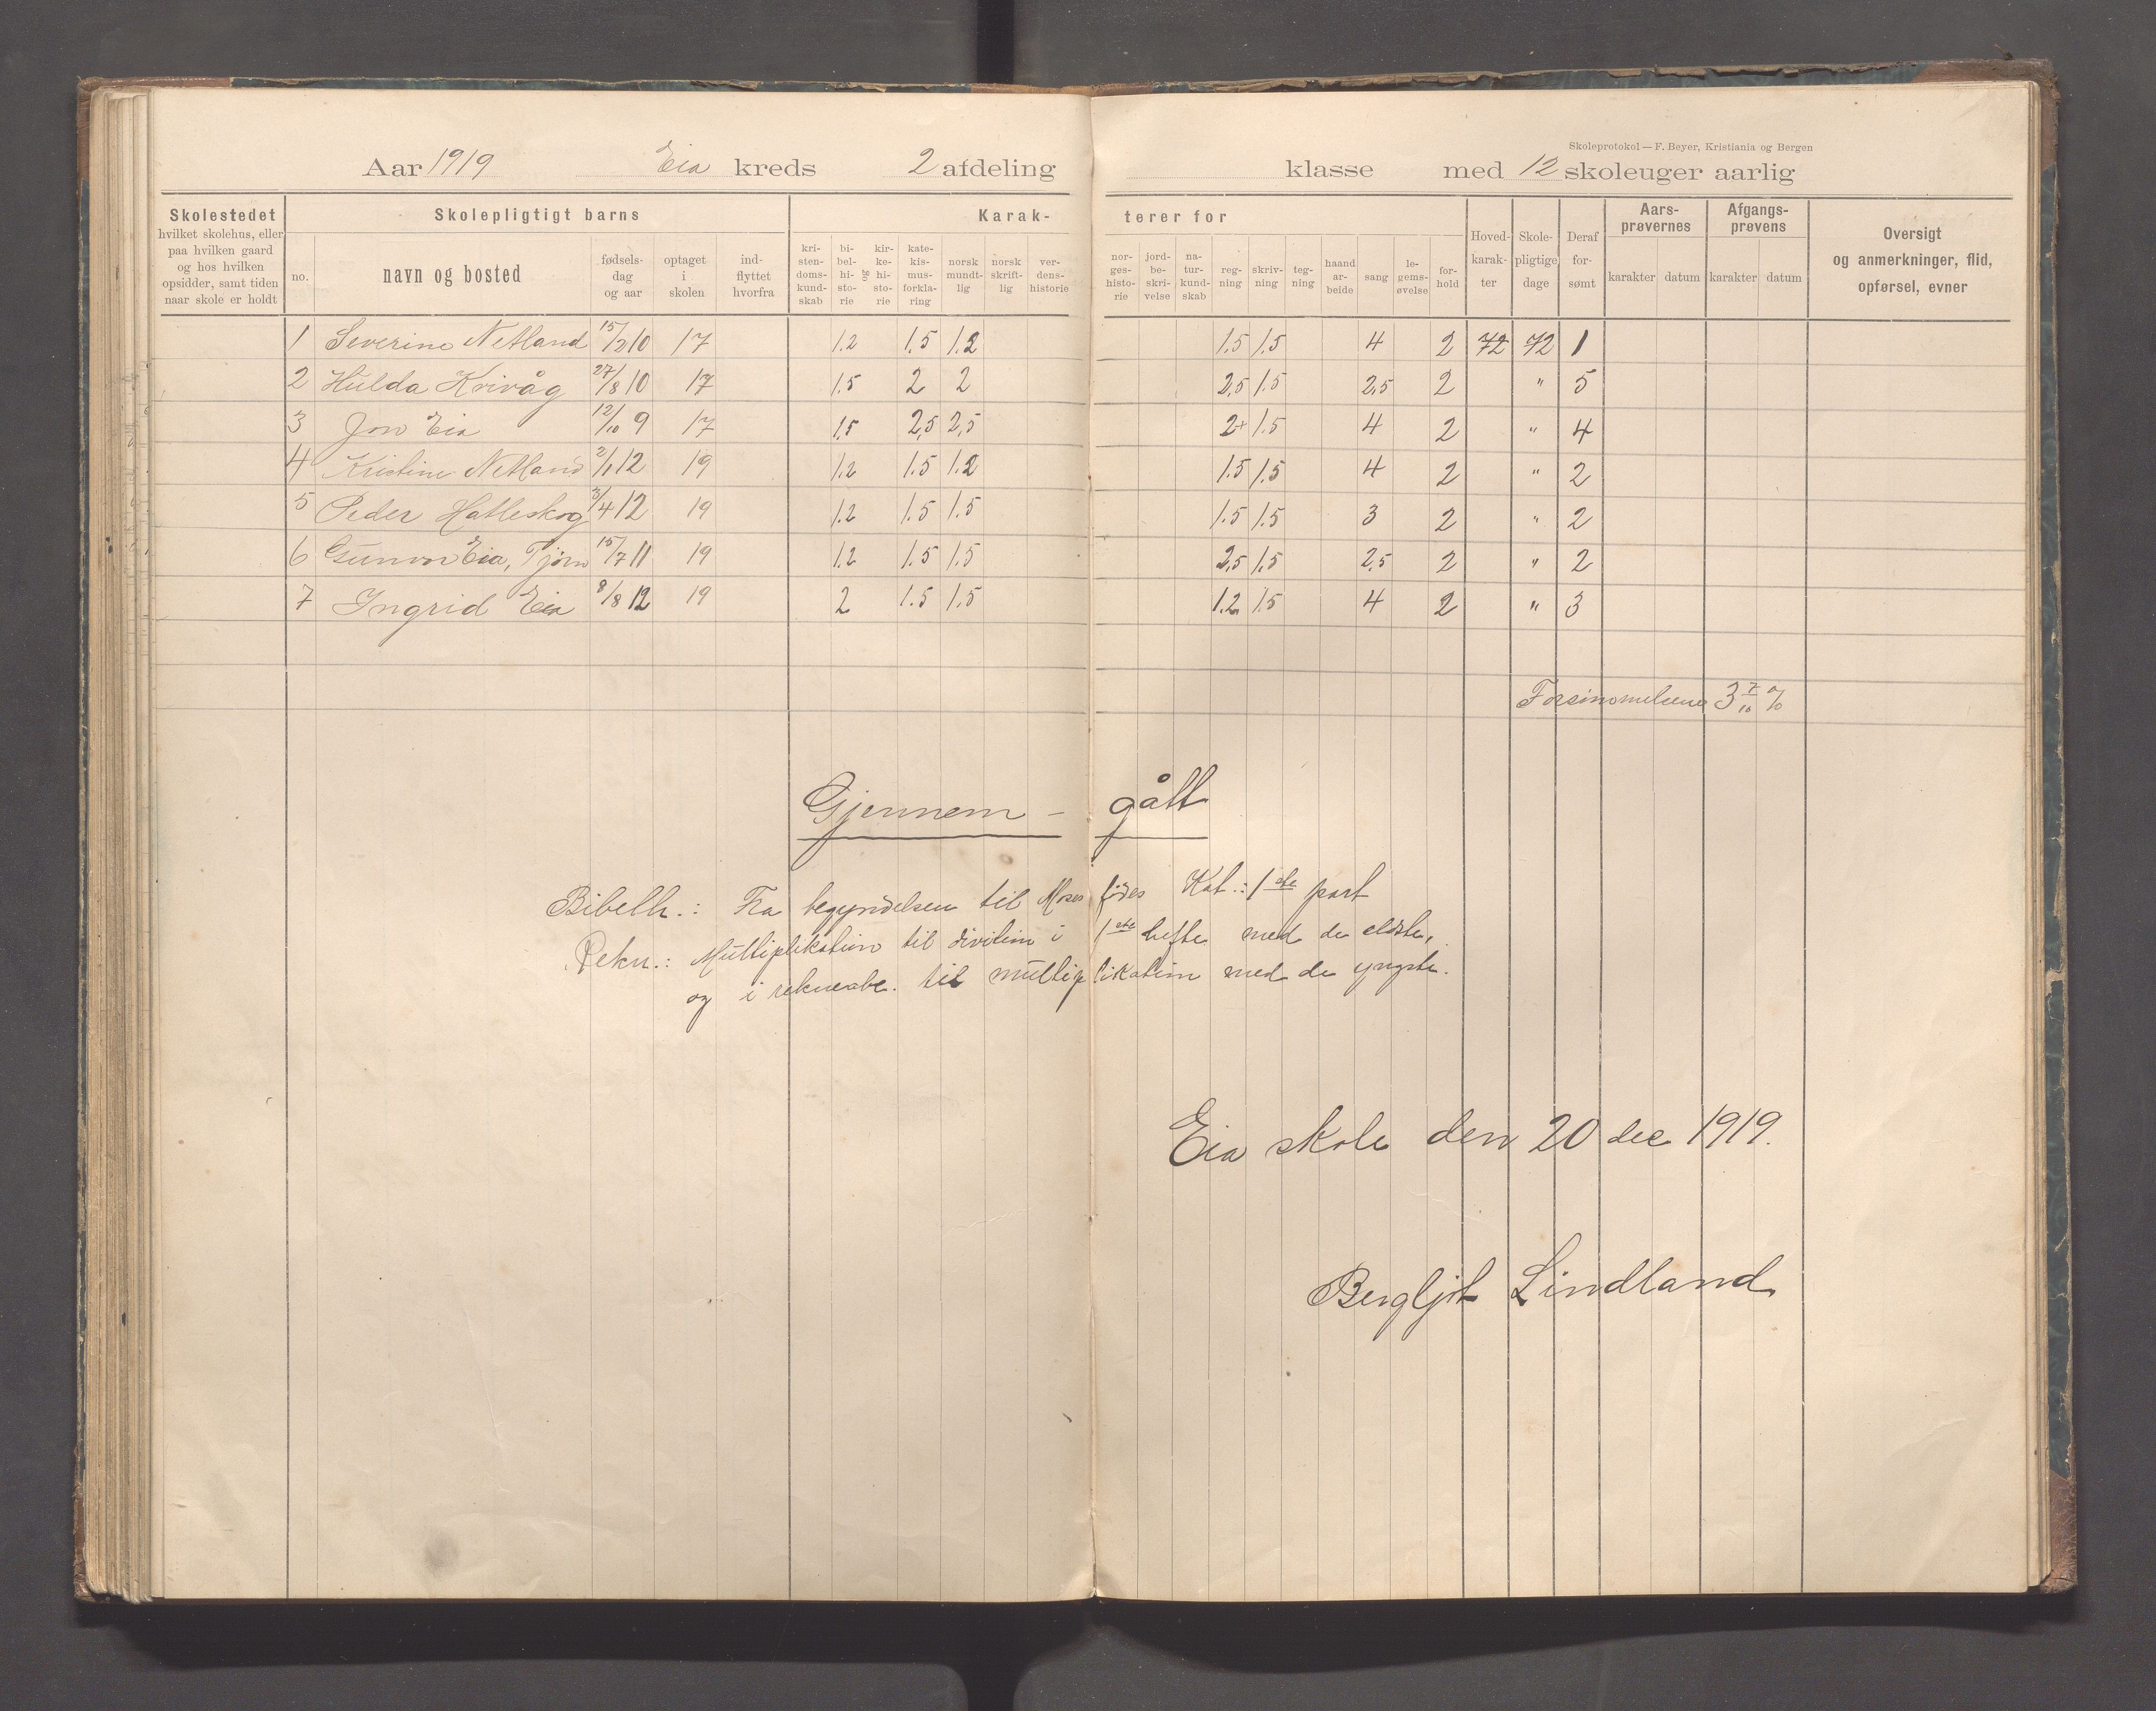 Skoleprotokol — F. Beyer, Kristiania og Bergen
Aar 1919 Eia kreds 2 afdeling klasse med 12 skoleuger aarlig
Skolestedet hvilket skolehus, eller paa hvilken gaard og hos hvilken opsidder, samt tiden naar skole er holdt
Skolepligtigt barns
Karak- terer for
no. navn og bosted fødsels- dag og aar optaget i skolen ind- flyttet hvorfra
kri- sten- doms- kund- skab bi- bel- hi- sto- rie og kir- ke- hi- sto- rie kate- kis- mus- forkla- ring norsk mundt- lig norsk skrift- lig ver- dens- historie
nor- ges- histo- rie jord- be- skri- velse na- tur- kund- skab reg- ning skriv- ning teg- ning haand ar- beide sang le- gems- øvelse for- hold
Hoved- karak- ter Skole- pligtige dage Deraf for- sømt
Aars- prøvernes karakter datum
Afgangs- prøvens karakter datum
Oversigt og anmerkninger, flid, opførsel, evner
1 Severine Netland 15/2 10 17 1.2 1.5 1.2 1.5 1.5 4 2 72 72 1
2 Hulda Krivåg 27/8 10 17 1.5 2 2 2,5 1.5 2,5 2 " 5
3 Jon Eia 12/10 9 17 1.5 2,5 2,5 2+ 1.5 4 2 " 4
4 Kristine Netland 2/1 12 19 1.2 1.5 1.2 1.5 1.5 4 2 " 2
5 Peder Hatleskog 3/4 12 19 1.2 1.5 1.5 1.5 1.5 3 2 " 2
6 Gunvor Eia, Tjörn 15/7 11 19 1.2 1.5 1.5 2,5 1.5 2,5 2 " 2
7 Ingrid Eia 8/8 12 19 2 1.5 1.5 1.2 1.5 4 2 " 3
3 7/10 %
Gjennem - gått
Bibelh.: Fra begyndelsen til Moses födes Kat.: 1ste part
Rekn.: Multiplikation til division i 1ste hefte med de eldste,
og i rekneabc. til multiplikation med de yngste.
Eia skole den 20 dec 1919.
Bergljot Lindland